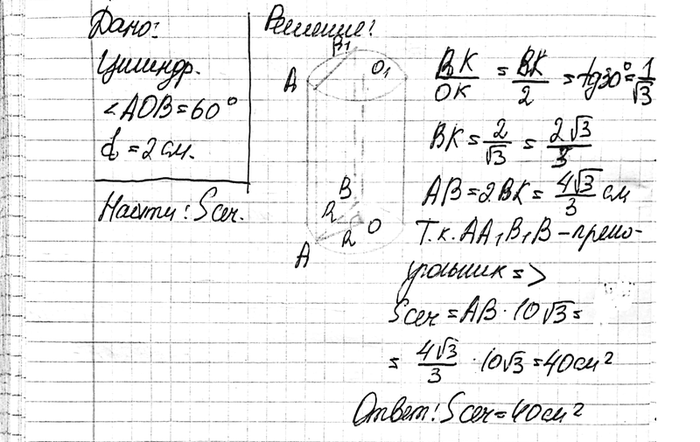 Дано:
Цилиндр.
∠AOB=60°
d=2см.
Найти: Sсеч.
Решение:
B1
A
O1
B
R
O
R
A
BK/OK = BK/2 = tg30° = 1/√3
BK = 2/√3 = 2√3/3
AB=2BK= 4√3/3 см
Т.к. AA1B1B – прямо-
угольник =>
Sсеч = AB · 10√3 =
= 4√3/3 · 10√3 = 40см²
Ответ: Sсеч=40см²